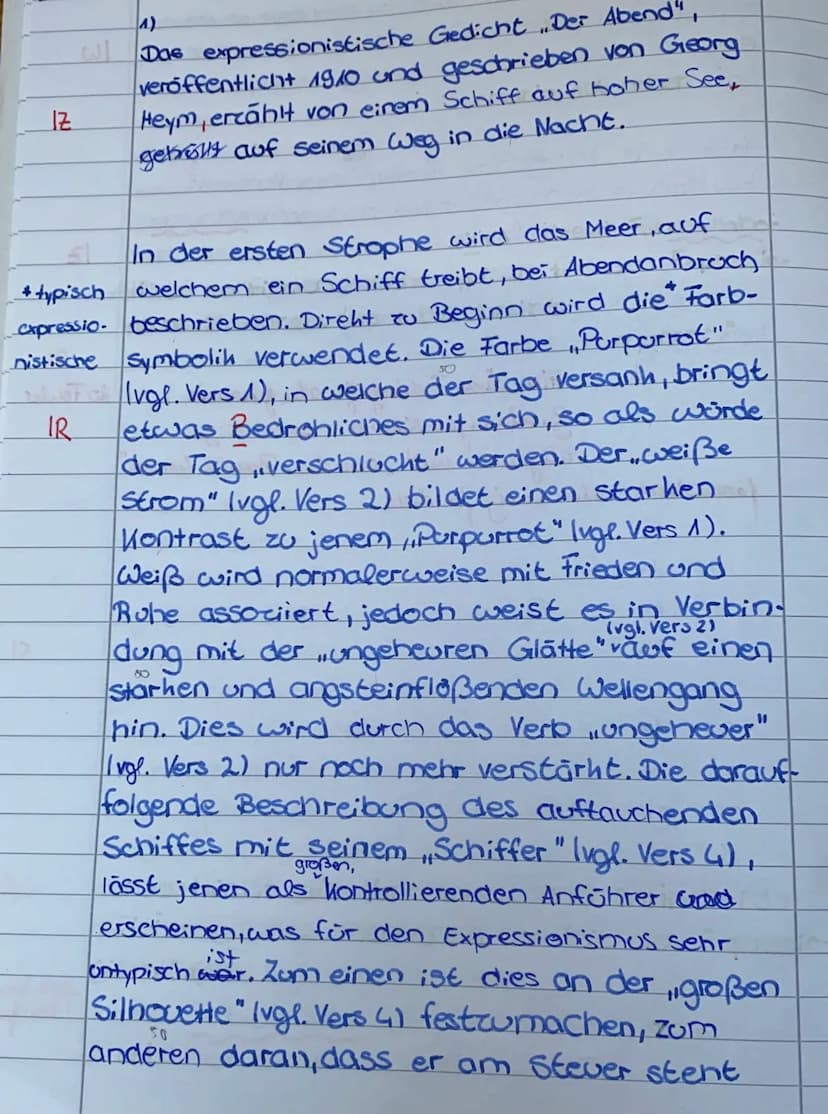 1)
Das expressionistische Gedicht „Der Abend",
veröffentlicht 1910 und geschrieben von Georg
1Z Heym, erzählt von einem Schiff auf hoher See,
auf seinem Weg in die Nacht.
In der ersten Strophe wird das Meer, auf
*typisch welchem ein Schiff treibt, bei Abendanbruch
expressio- beschrieben. Direkt zu Beginn wird die* Farb-
nistische symbolik verwendet. Die Farbe „Purpurrot"
50
(vgl. Vers 1), in welche der Tag versank, bringt
1R etwas Bedrohliches mit sich, so als würde
der Tag „verschluckt" werden. Der „weiße
Strom" (vgl. Vers 2) bildet einen starken
Kontrast zu jenem „Purpurrot" (vgl. Vers 1).
Weiß wird normalerweise mit Frieden und
Ruhe assoziiert, jedoch weist es in Verbin-
(vgl. Vers 2)
dung mit der „ungeheuren Glätte" auf einen
50
starken und angsteinflößenden Wellengang
hin. Dies wird durch das Verb „ungeheuer"
(vgl. Vers 2) nur noch mehr verstärkt. Die darauf-
folgende Beschreibung des auftauchenden
Schiffes mit seinem „Schiffer" (vgl. Vers 4),
großen,
lässt jenen als kontrollierenden Anführer
erscheinen, was für den Expressionismus sehr
ist
untypisch war. Zum einen ist dies an der „großen
Silhouette" (vgl. Vers 4) festzumachen, zum
50
anderen daran, dass er am Steuer steht